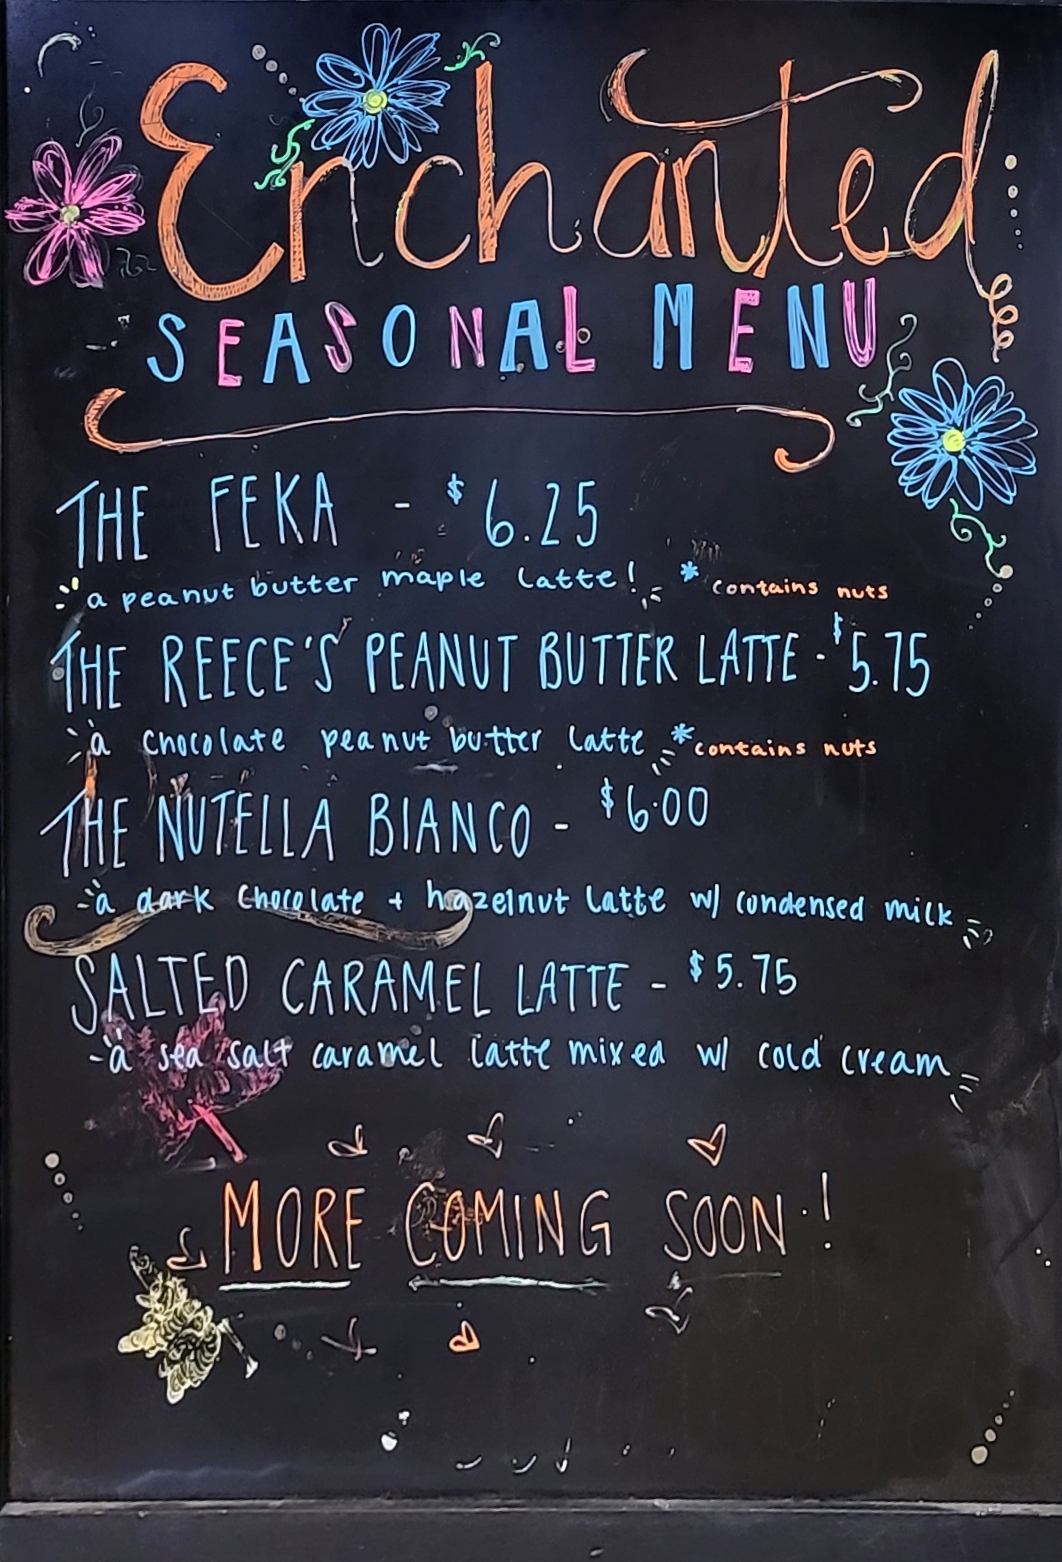 Enchanted
SEASONAL MENU
THE FEKA - $6.25
a peanut butter maple latte! *contains nuts
THE REECE'S PEANUT BUTTER LATTE - $5.75
a chocolate peanut butter latte *contains nuts
THE NUTELLA BIANCO - $6.00
a dark chocolate + hazelnut latte w/ condensed milk
SALTED CARAMEL LATTE - $5.75
a sea salt caramel latte mixed w/ cold cream
MORE COMING SOON!